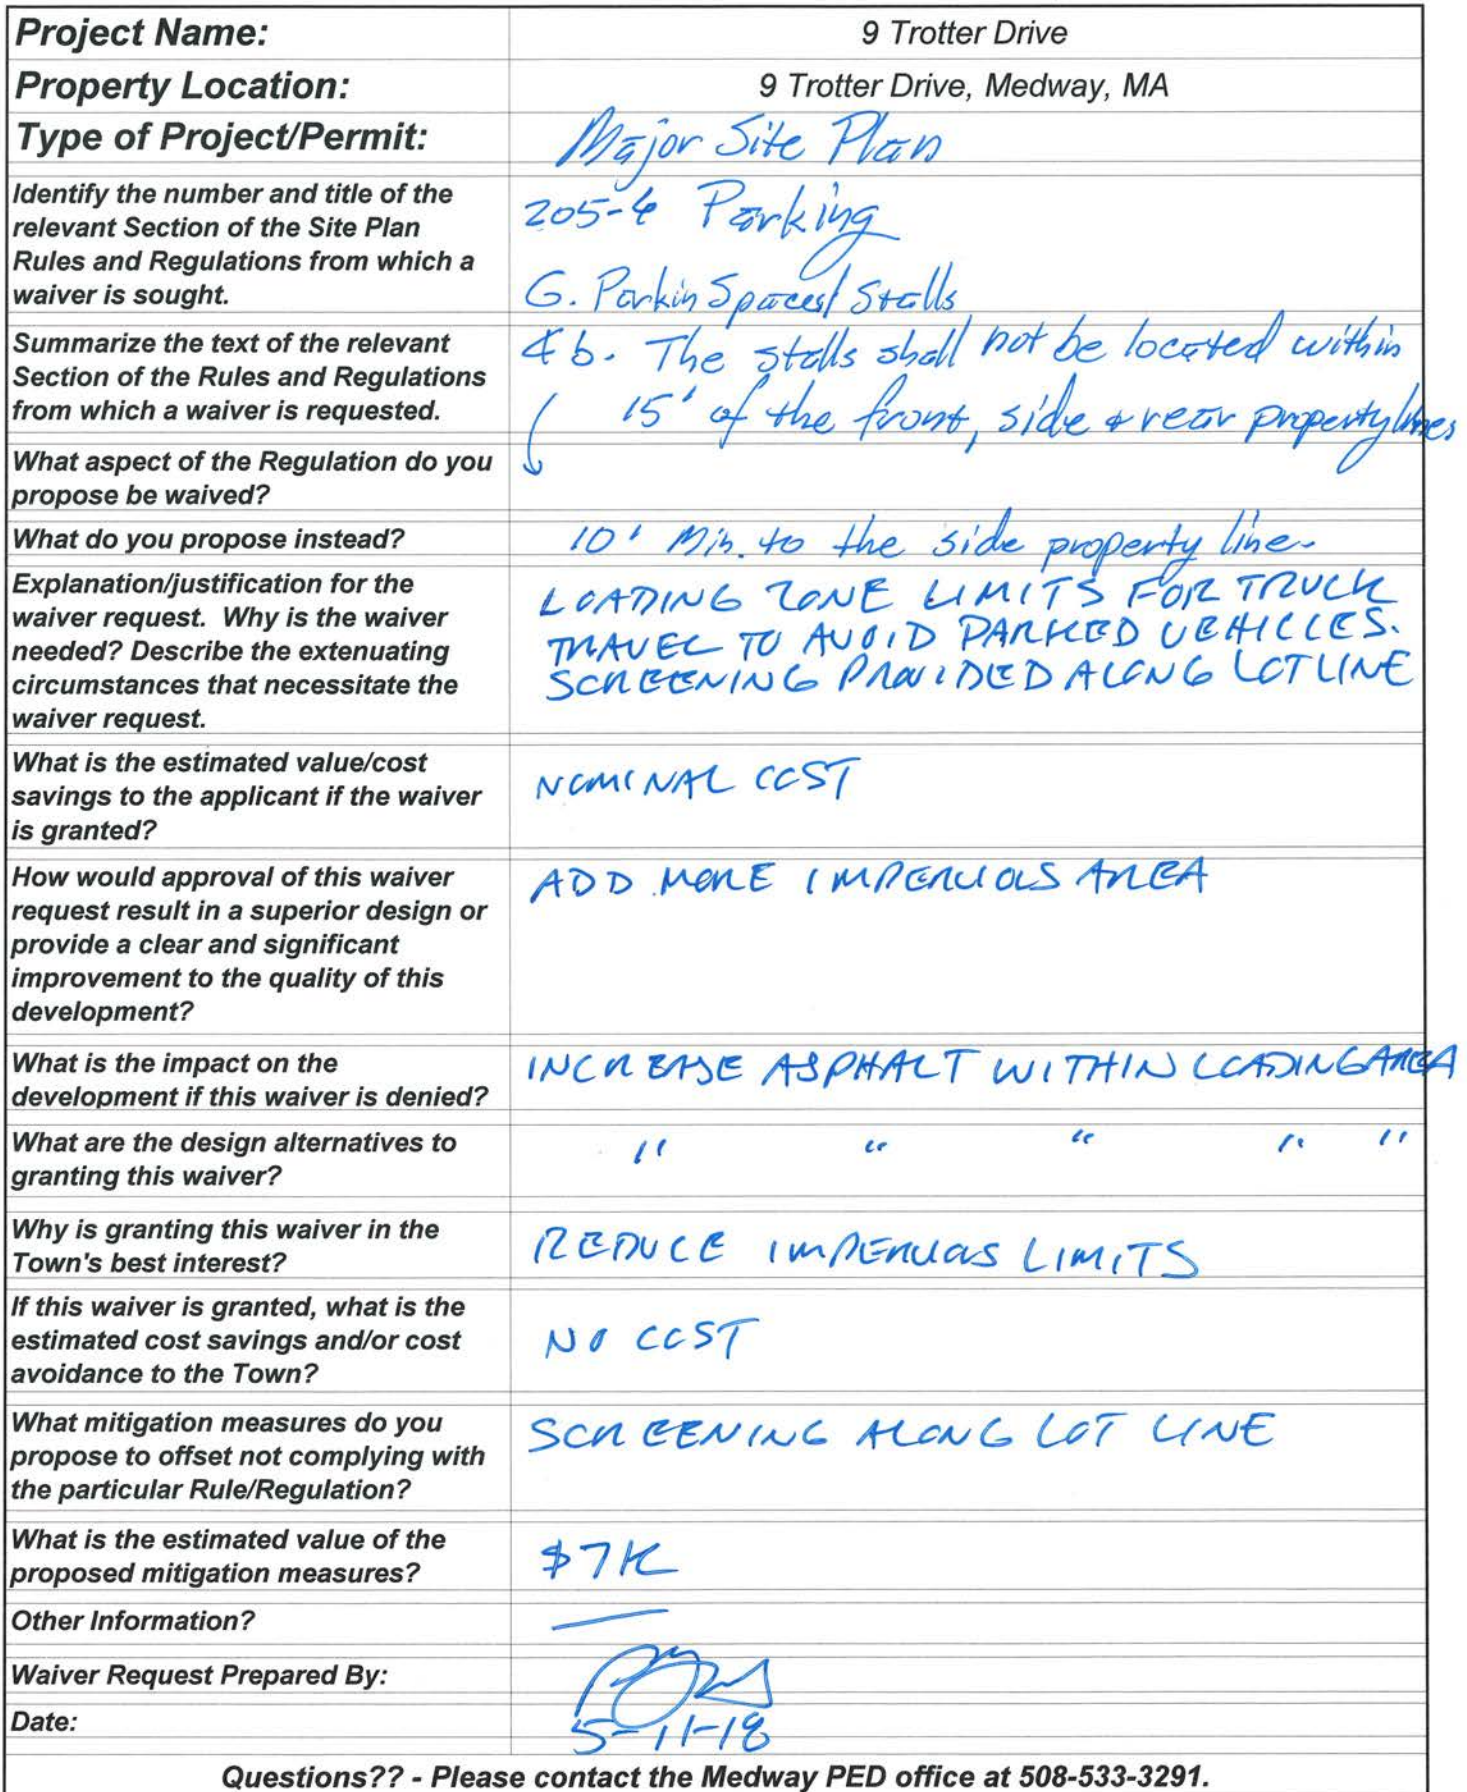 Project Name: 9 Trotter Drive
Property Location: 9 Trotter Drive, Medway, MA
Type of Project/Permit: Major Site Plan
Identify the number and title of the
relevant Section of the Site Plan
Rules and Regulations from which a
waiver is sought.
205-6 Parking
G. Parkin Spaces/ Stalls
Summarize the text of the relevant
Section of the Rules and Regulations
from which a waiver is requested.
4 b. The stalls shall not be located within
15' of the front, side & rear property lines
What aspect of the Regulation do you
propose be waived?
What do you propose instead? 10' Min. to the side property line.
Explanation/justification for the
waiver request. Why is the waiver
needed? Describe the extenuating
circumstances that necessitate the
waiver request.
LOADING ZONE LIMITS FOR TRUCK
TRAVEL TO AVOID PARKED VEHICLES.
SCREENING PROVIDED ALONG LOT LINE
What is the estimated value/cost
savings to the applicant if the waiver
is granted?
NOMINAL COST
How would approval of this waiver
request result in a superior design or
provide a clear and significant
improvement to the quality of this
development?
ADD MORE IMPERVIOUS AREA
What is the impact on the
development if this waiver is denied?
INCREASE ASPHALT WITHIN LOADING AREA
What are the design alternatives to
granting this waiver?
" " " " "
Why is granting this waiver in the
Town's best interest?
REDUCE IMPERVIOUS LIMITS
If this waiver is granted, what is the
estimated cost savings and/or cost
avoidance to the Town?
NO COST
What mitigation measures do you
propose to offset not complying with
the particular Rule/Regulation?
SCREENING ALONG LOT LINE
What is the estimated value of the
proposed mitigation measures?
$7K
Other Information? —
Waiver Request Prepared By:
Date: 5-11-18
Questions?? - Please contact the Medway PED office at 508-533-3291.